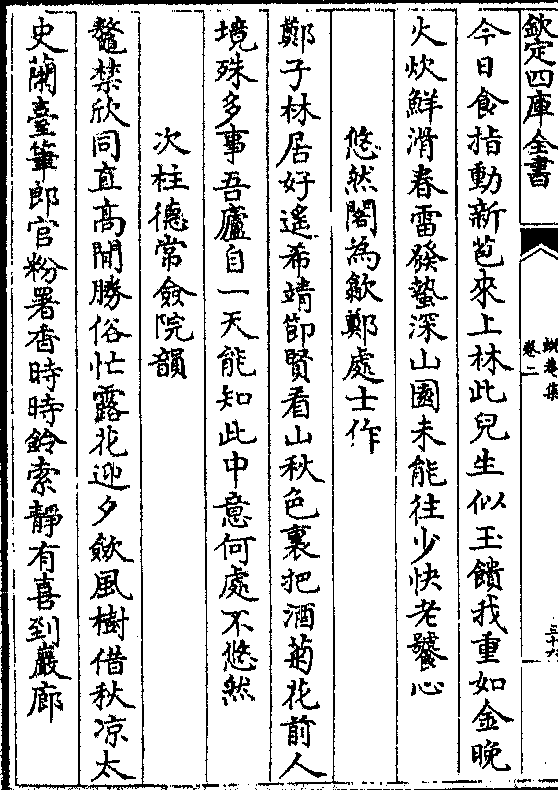 欽定四庫全書
卷二
三十六
今日食指動新苞來上林此兒生似玉饋我重如金晚
火炊鮮滑春雷發蟄深山園未能往少快老饕心
悠然閣為歙鄭處士作
鄭子林居好遙希靖節賢看山秋色裏把酒菊花前人
境殊多事吾廬自一天能知此中意何處不悠然
次柱德常僉院韻
鼇禁欣同直高閒勝俗忙露花迎夕斂風樹借秋凉太
史蘭臺筆郎官粉署香時時鈴索靜有喜到巖廊